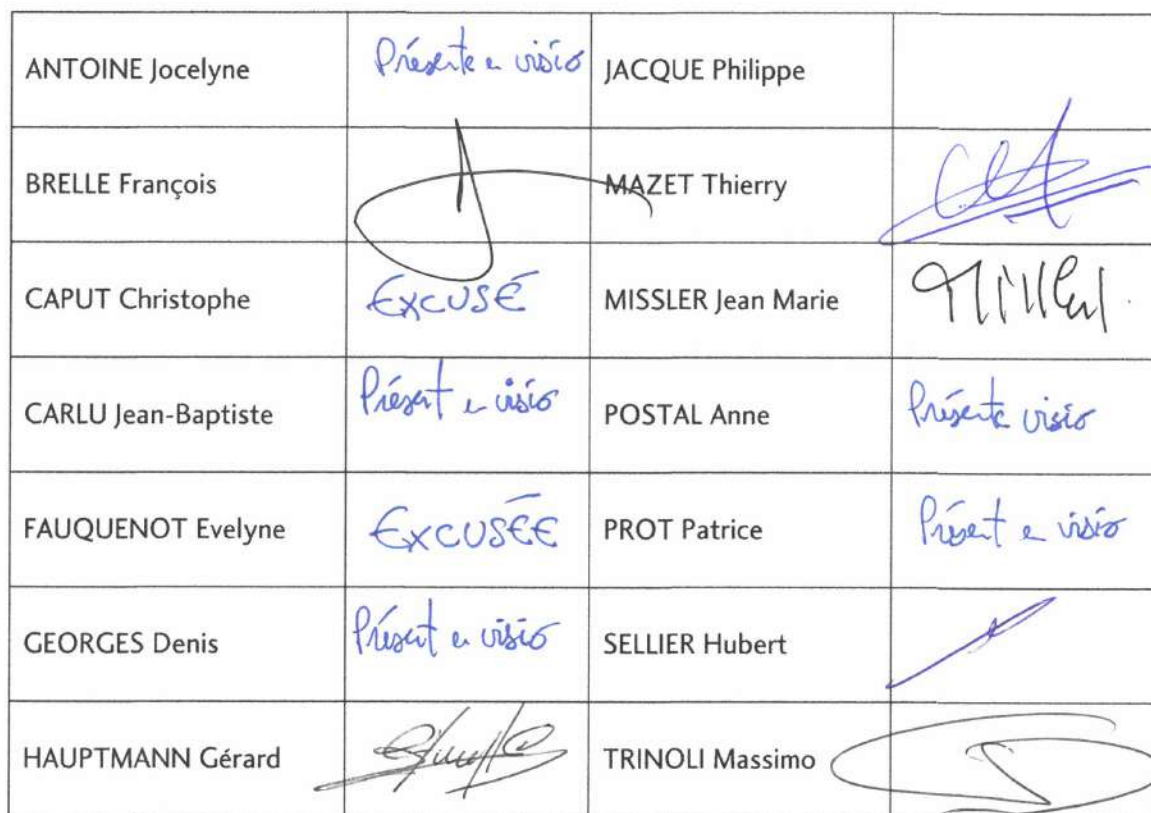 ANTOINE Jocelyne Présente en visio JACQUE Philippe
BRELLE François MAZET Thierry
CAPUT Christophe EXCUSÉ MISSLER Jean Marie
CARLU Jean-Baptiste Présent en visio POSTAL Anne Présente visio
FAUQUENOT Evelyne EXCUSÉE PROT Patrice Présent en visio
GEORGES Denis Présent en visio SELLIER Hubert
HAUPTMANN Gérard TRINOLI Massimo